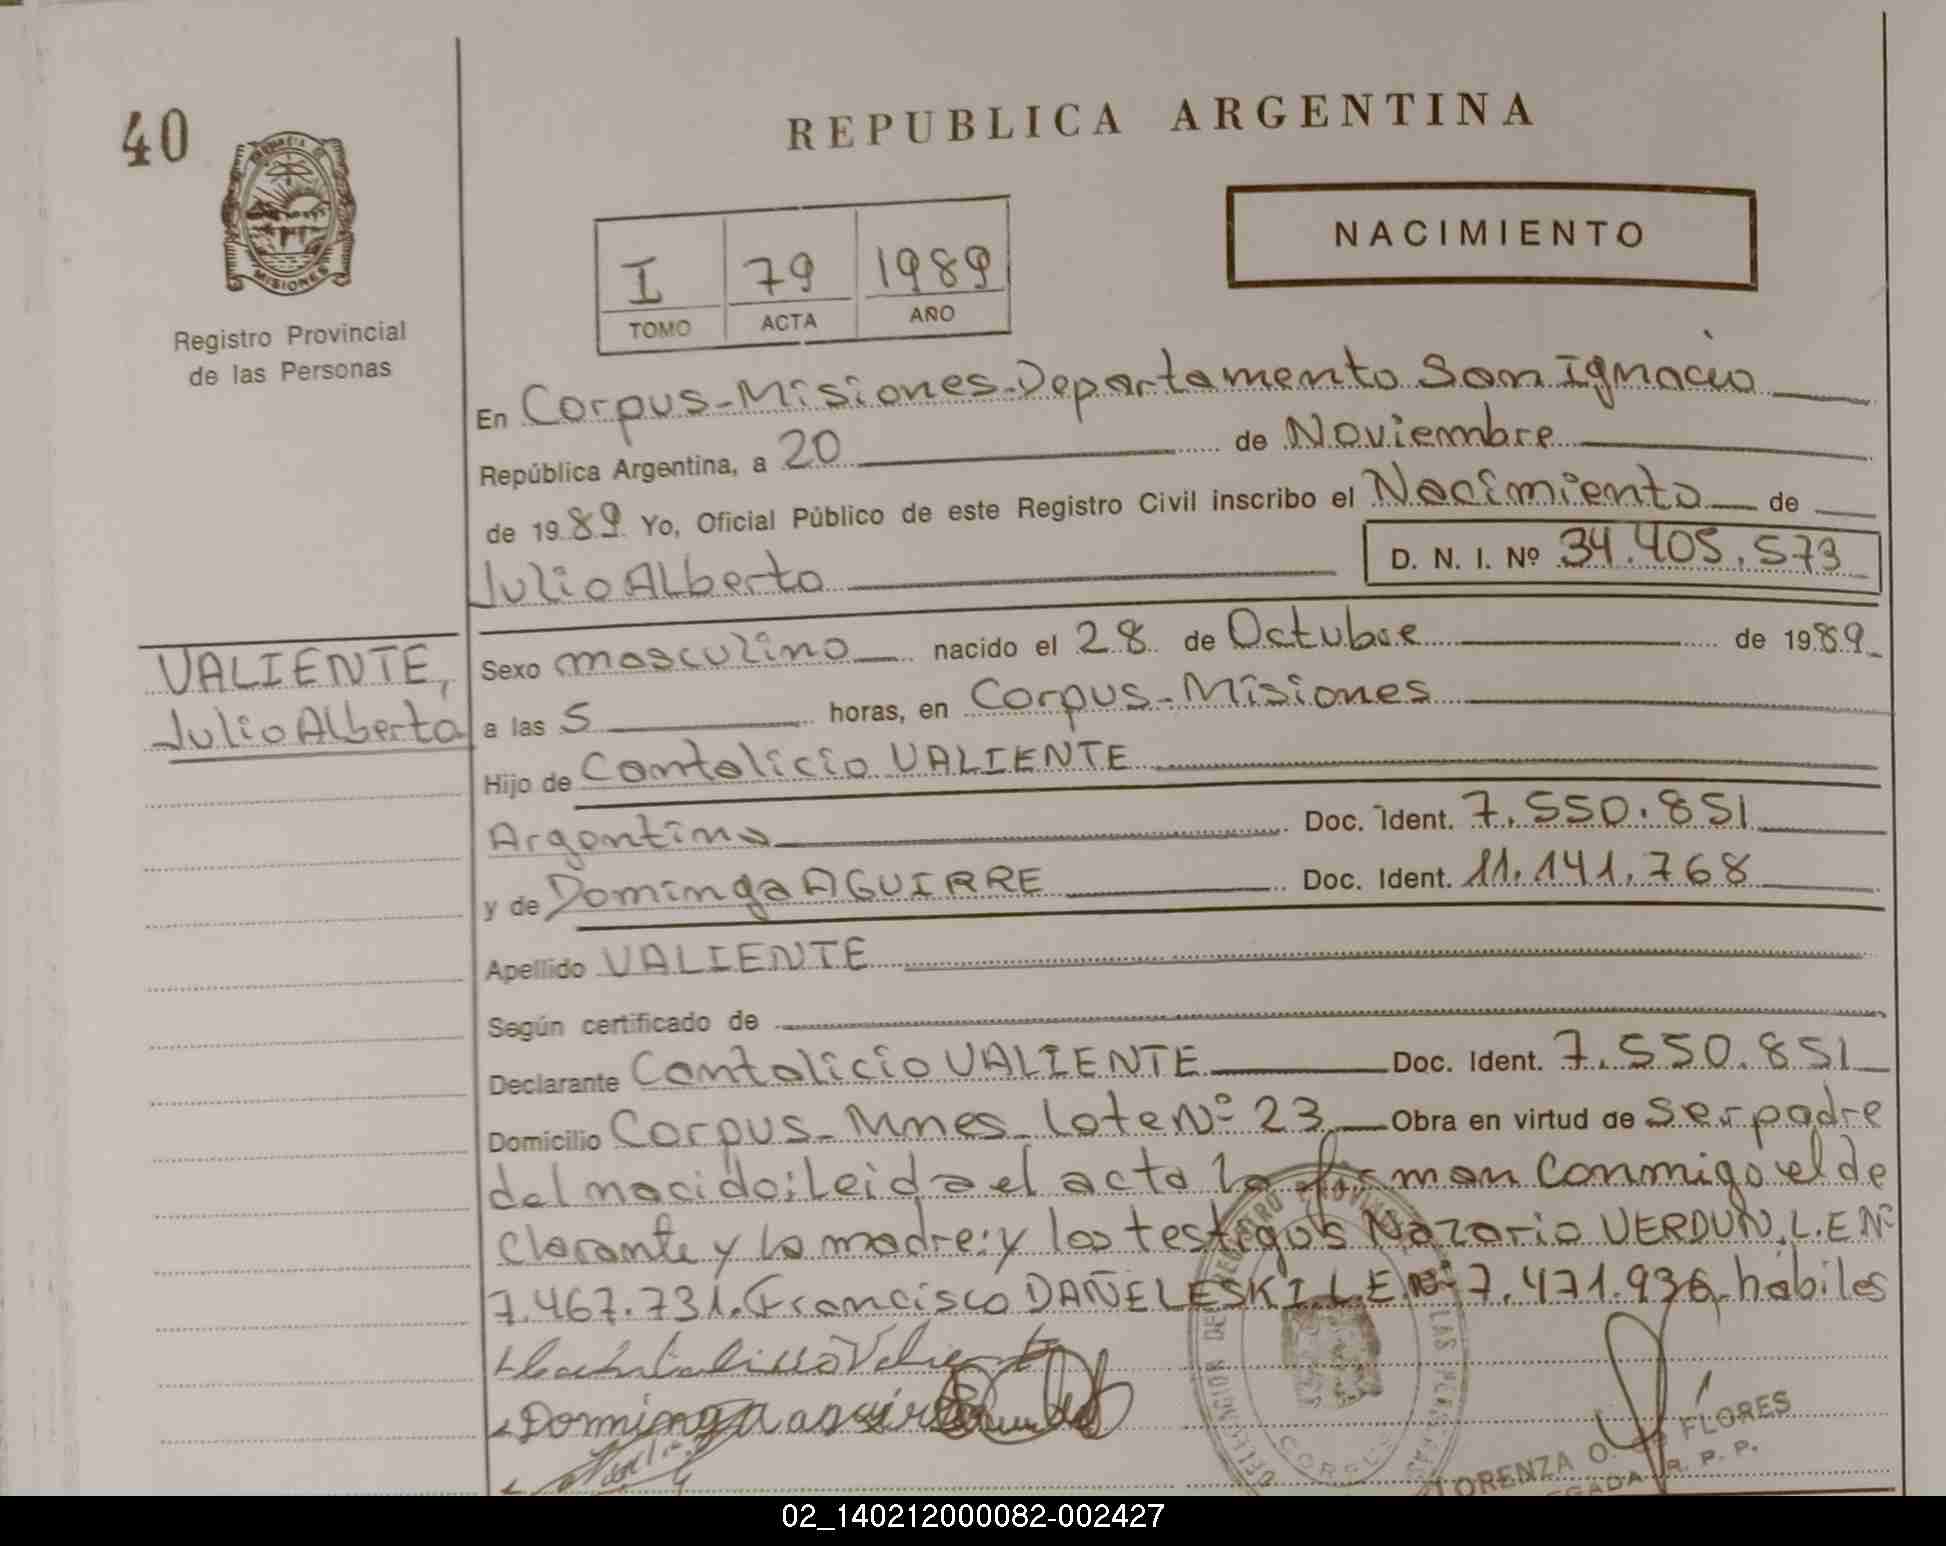 40
REPUBLICA ARGENTINA
MISIONES
Registro Provincial
de las Personas
I 79 1989
TOMO ACTA AÑO
NACIMIENTO
En Corpus-Misiones-Departamento San Ignacio
República Argentina, a 20 de Noviembre
de 1989 Yo, Oficial Público de este Registro Civil inscribo el Nacimiento de
Julio Alberto D. N. I. Nº 34.405.573
VALIENTE,
Julio Alberto
Sexo masculino nacido el 28 de Octubre de 1989
a las 5 horas, en Corpus-Misiones
Hijo de Cantalicio VALIENTE
Argentino Doc. Ident. 7.550.851
y de Dominga AGUIRRE Doc. Ident. 11.141.768
Apellido VALIENTE
Según certificado de
Declarante Cantalicio VALIENTE Doc. Ident. 7.550.851
Domicilio Corpus-Mnes-Lote Nº 23 Obra en virtud de ser padre
del nacido; Leida el acta la firman conmigo el de
clarante y la madre: y los testigos Nazario VERDUN, L.E Nº
7.467.731. Francisco DAÑELESKI L.E.Nº 7.471.936 habiles
Dominga aguirre
CORPUS
LORENZA O. DE FLORES
DELEGADA R. P. P.
02_140212000082-002427